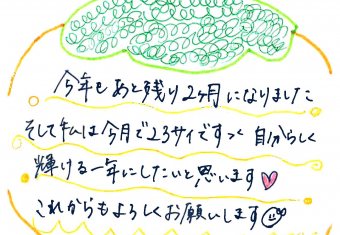 今年もあと残り2ヶ月になりました
そして私は今月で23サイですっ 自分らしく
輝ける一年にしたいと思います
これからもよろしくお願いします